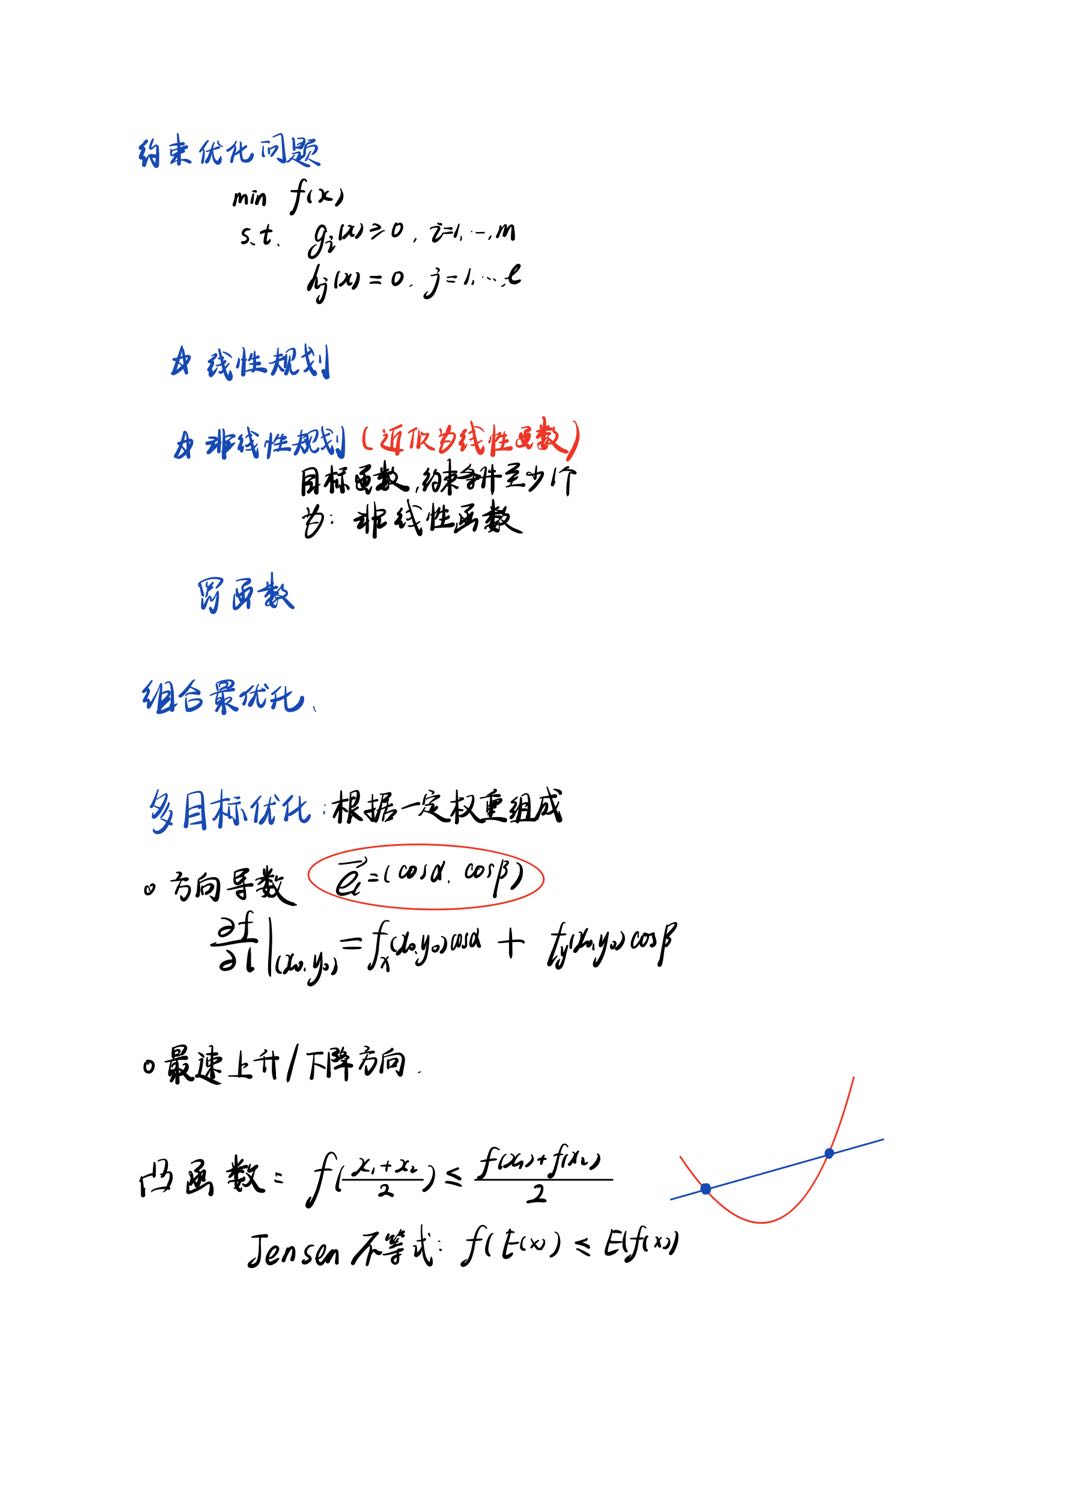 约束优化问题
min f(x)
s.t. gᵢ(x) ≥ 0, i=1,…,m
hⱼ(x) = 0. j=1,…,l
☆ 线性规划
☆ 非线性规划 (近似为线性函数)
目标函数,约束条件至少1个
为: 非线性函数
函数
组合最优化、
多目标优化:根据一定权重组成
o 方向导数 e⃗ₗ=(cosα. cosβ)
∂f/∂l|(x₀,y₀) = fₓ(x₀,y₀)cosα + f_y(x₀,y₀)cosβ
o 最速上升/下降方向.
凸函数: f((x₁+x₂)/2) ≤ (f(x₁)+f(x₂))/2
Jensen 不等式: f(E(x)) ≤ E(f(x))